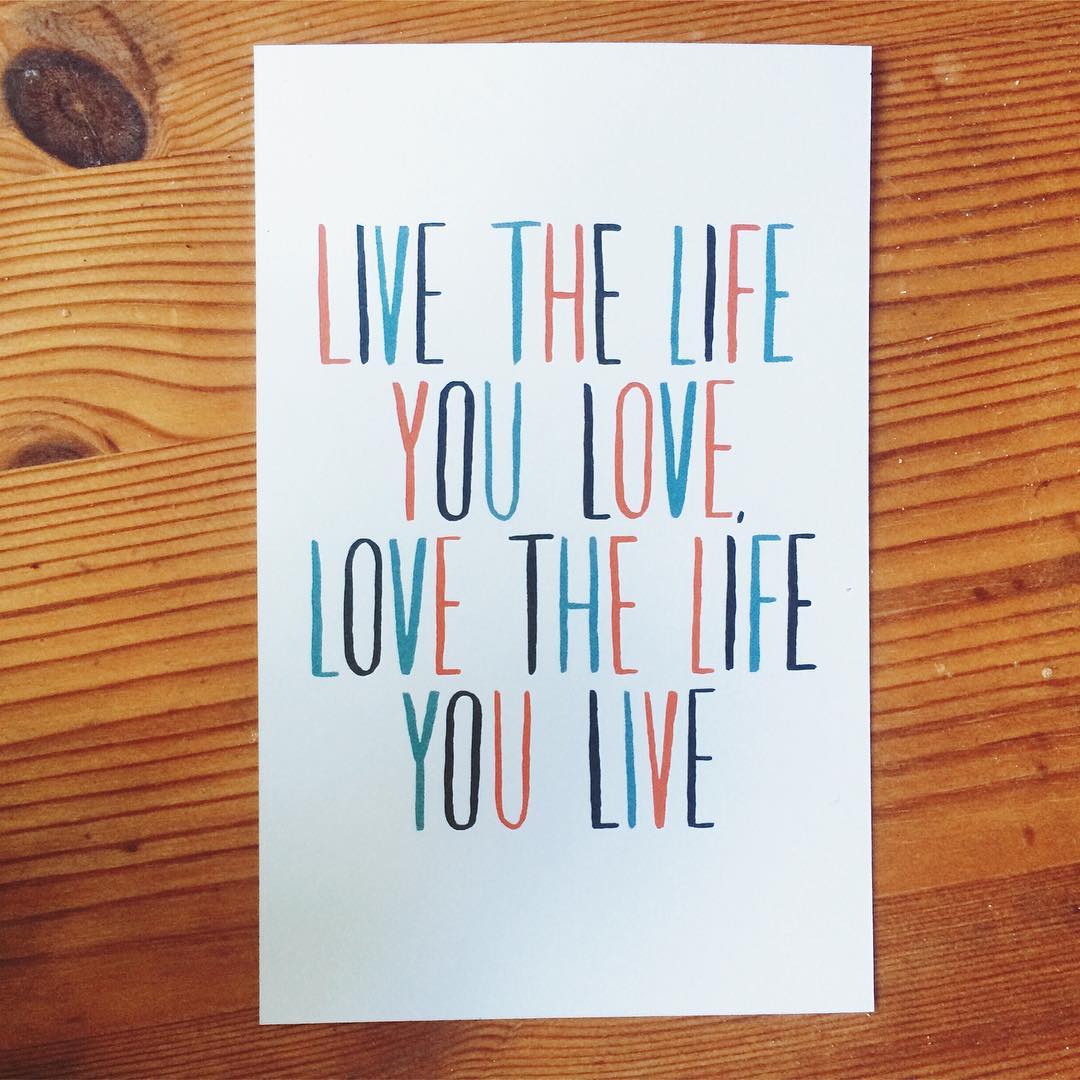 LIVE THE LIFE
YOU LOVE,
LOVE THE LIFE
YOU LIVE